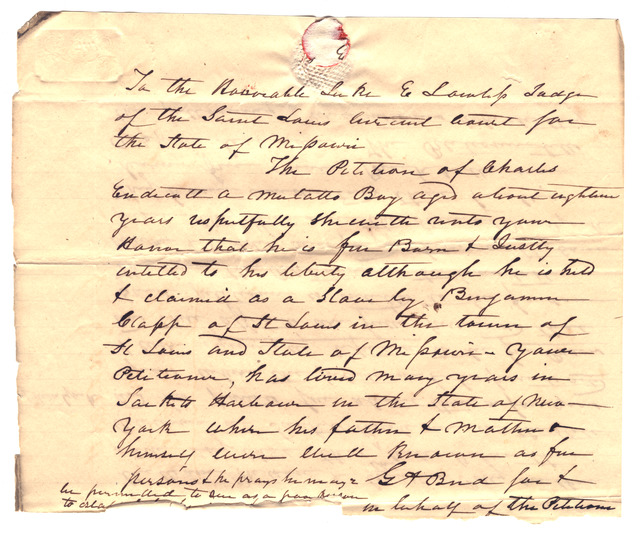 To the Honorable Luke E Lawless Judge
of the Saint Louis Circuit Court for
the State of Missouri
The Petition of Charles
Endicott a mulatto Boy aged about eighteen
years respectfully sheweth unto your
Honor that he is free Born & Justly
intitled to his liberty although he is held
& claimed as a Slave by Benjamin
Clapp of St Louis in the town of
St Louis and State of Missouri – Your
Petitioner, has lived many years in
Sacketts Harbour in the State of New–
York where his father & Mother &
himself were well known as free
persons & he prays he may
be permitted to sue as a poor person
to
G A Bird for &
in behalf of the Petitioner